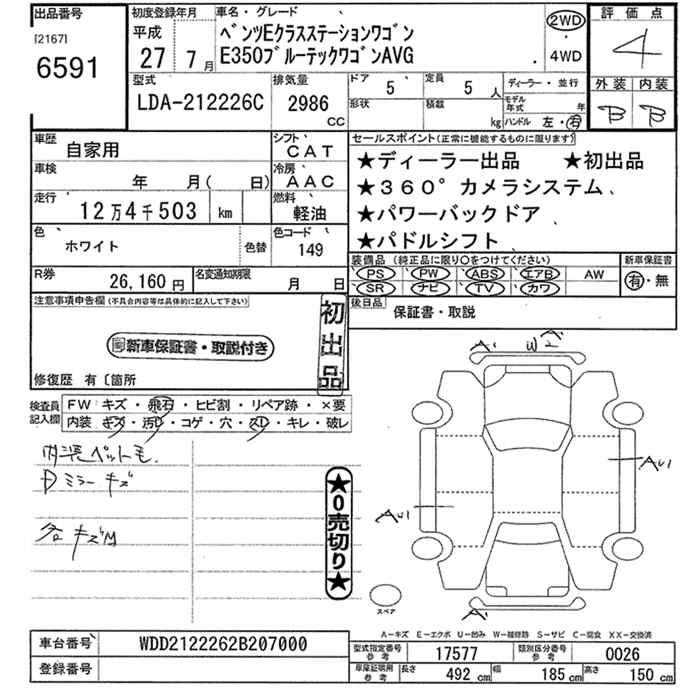 出品番号
[2167]
6591
初度登録年月
平成
27年 7月
車名・グレード
ベンツEクラスステーションワゴン
E350ブルーテックワゴンAVG
2WD
・
4WD
評価点
4
外装 内装
B B
型式
LDA-212226C
排気量
2986
CC
ドア 5
定員 5人
形状
積載 kg
ディーラー・並行
モデル年式 年
ハンドル 左・右
車歴
自家用
シフト
CAT
車検
年 月( 日)
冷房
AAC
走行
12万4千503 km
燃料
軽油
色
ホワイト
色替
色コード
149
R券
26,160円
名変通知期限
月 日
セールスポイント(正常に機能するものに限ります)
★ディーラー出品 ★初出品
★360°カメラシステム
★パワーバックドア
★パドルシフト
装備品(純正品に限り○をつけてください)
PS PW ABS エアB AW
SR ナビ TV カワ
新車保証書
有・無
後日品
保証書・取説
注意事項申告欄(不具合内容等は具体的に記入して下さい)
新車保証書・取説付き
初出品
修復歴 有〔箇所
検査員記入欄
FW キズ・飛石・ヒビ割・リペア跡・×要
内装 キズ・汚レ・コゲ・穴・スレ・キレ・破レ
内装ペット毛
Dミラーキズ
各キズM
★0売切り★
A1
W2
AU1
AU1
スペア
A-キズ E-エクボ U-凹み W-補修跡 S-サビ C-腐食 XX-交換済
車台番号
WDD2122262B207000
登録番号
型式指定番号参考
17577
類別区分番号参考
0026
車庫証明用参考
長さ 492cm
幅 185cm
高さ 150cm